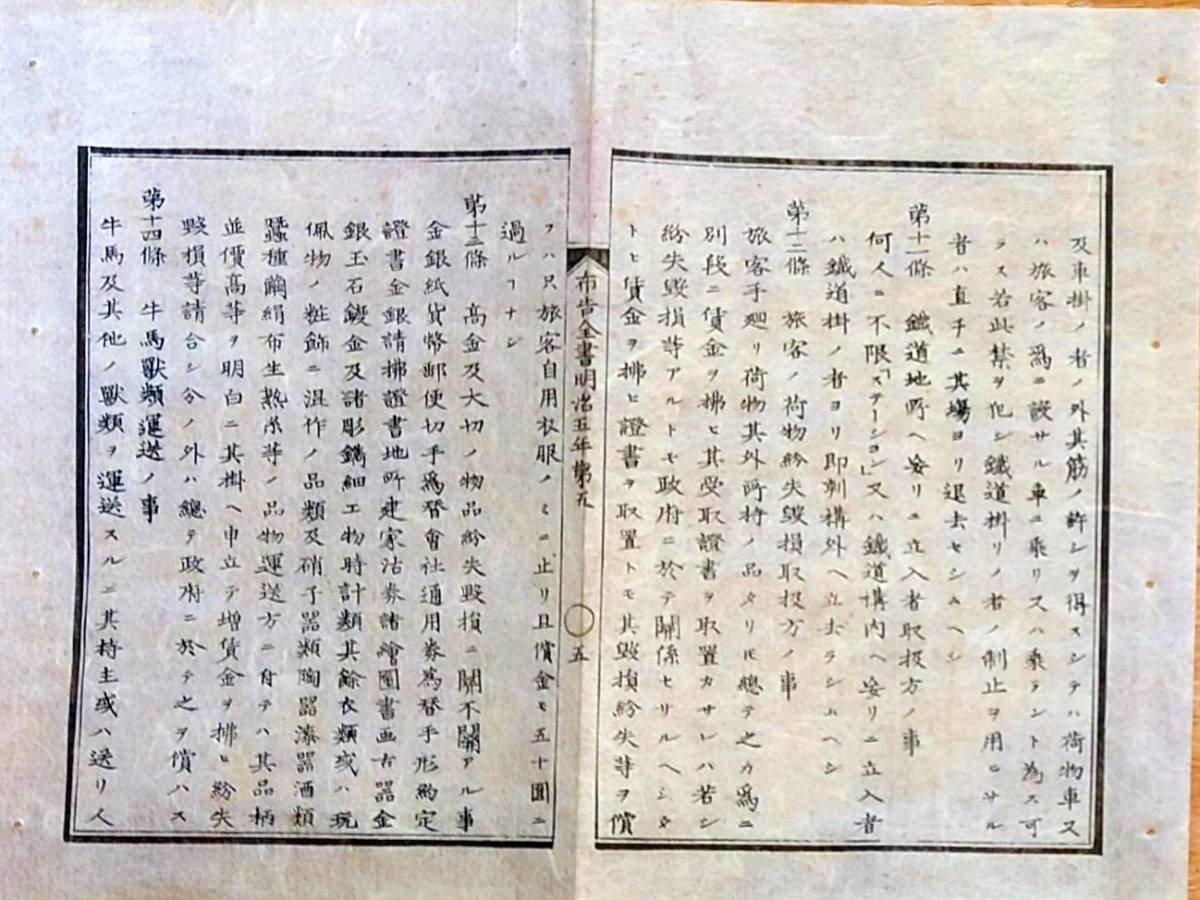 及車掛ノ者ノ外其筋ノ許シヲ得スシテハ荷物車又
ハ旅客ノ爲ニ設サル車ニ乘リ又ハ乘ラント為ス可
ラス若此禁ヲ犯シ鐵道掛リノ者ノ制止ヲ用ヒサル
者ハ直チニ其場ヨリ退去セシムヘシ
第十一條 鐵道地所ヘ妄リニ立入者取扱方ノ事
何人ニ不限「ステーション」又ハ鐵道構内ヘ妄リニ立入者
ハ鐵道掛ノ者ヨリ即刻構外ヘ立去ラシムヘシ
第十二條 旅客ノ荷物紛失毀損取扱方ノ事
旅客手廻リ荷物其外所持ノ品タリトモ總テ之カ爲ニ
別段ニ賃金ヲ拂ヒ其受取證書ヲ取置カサレハ若シ
紛失毀損等アルトモ政府ニ於テ關係セサルヘシタ
トヒ賃金ヲ拂ヒ證書ヲ取置トモ其毀損紛失等ヲ償
布告全書明治五年第九
五
フハ只旅客自用衣服ノミニ止リ且償金モ五十圓ニ
過ルコナシ
第十三條 高金及大切ノ物品紛失毀損ニ關不關アル事
金銀紙貨幣郵便切手爲替會社通用劵為替手形約定
證書金銀請拂證書地所建家沽劵諸繪圖書画古器金
銀玉石鍍金及諸彫鐫細工物時計類其餘衣類或ハ玩
佩物ノ粧飾ニ混作ノ品類及硝子器類陶器漆器酒類
蠶種繭絹布生熟糸等ノ品物運送方ニ付テハ其品柄
並價高等ヲ明白ニ其掛ヘ申立テ増賃金ヲ拂ヒ紛失
毀損等請合シ分ノ外ハ總テ政府ニ於テ之ヲ償ハス
第十四條 牛馬獸類運送ノ事
牛馬及其他ノ獸類ヲ運送スルニ其持主或ハ送リ人